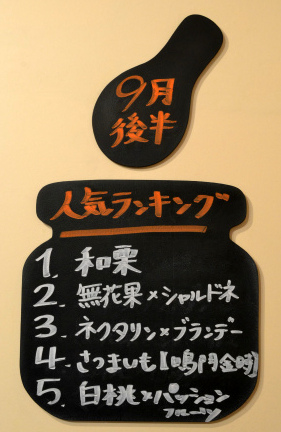 9月
後半
人気ランキング
1. 和栗
2. 無花果×シャルドネ
3. ネクタリン×ブランデー
4. さつまいも【鳴門金時】
5. 白桃×パッション
フルーツ